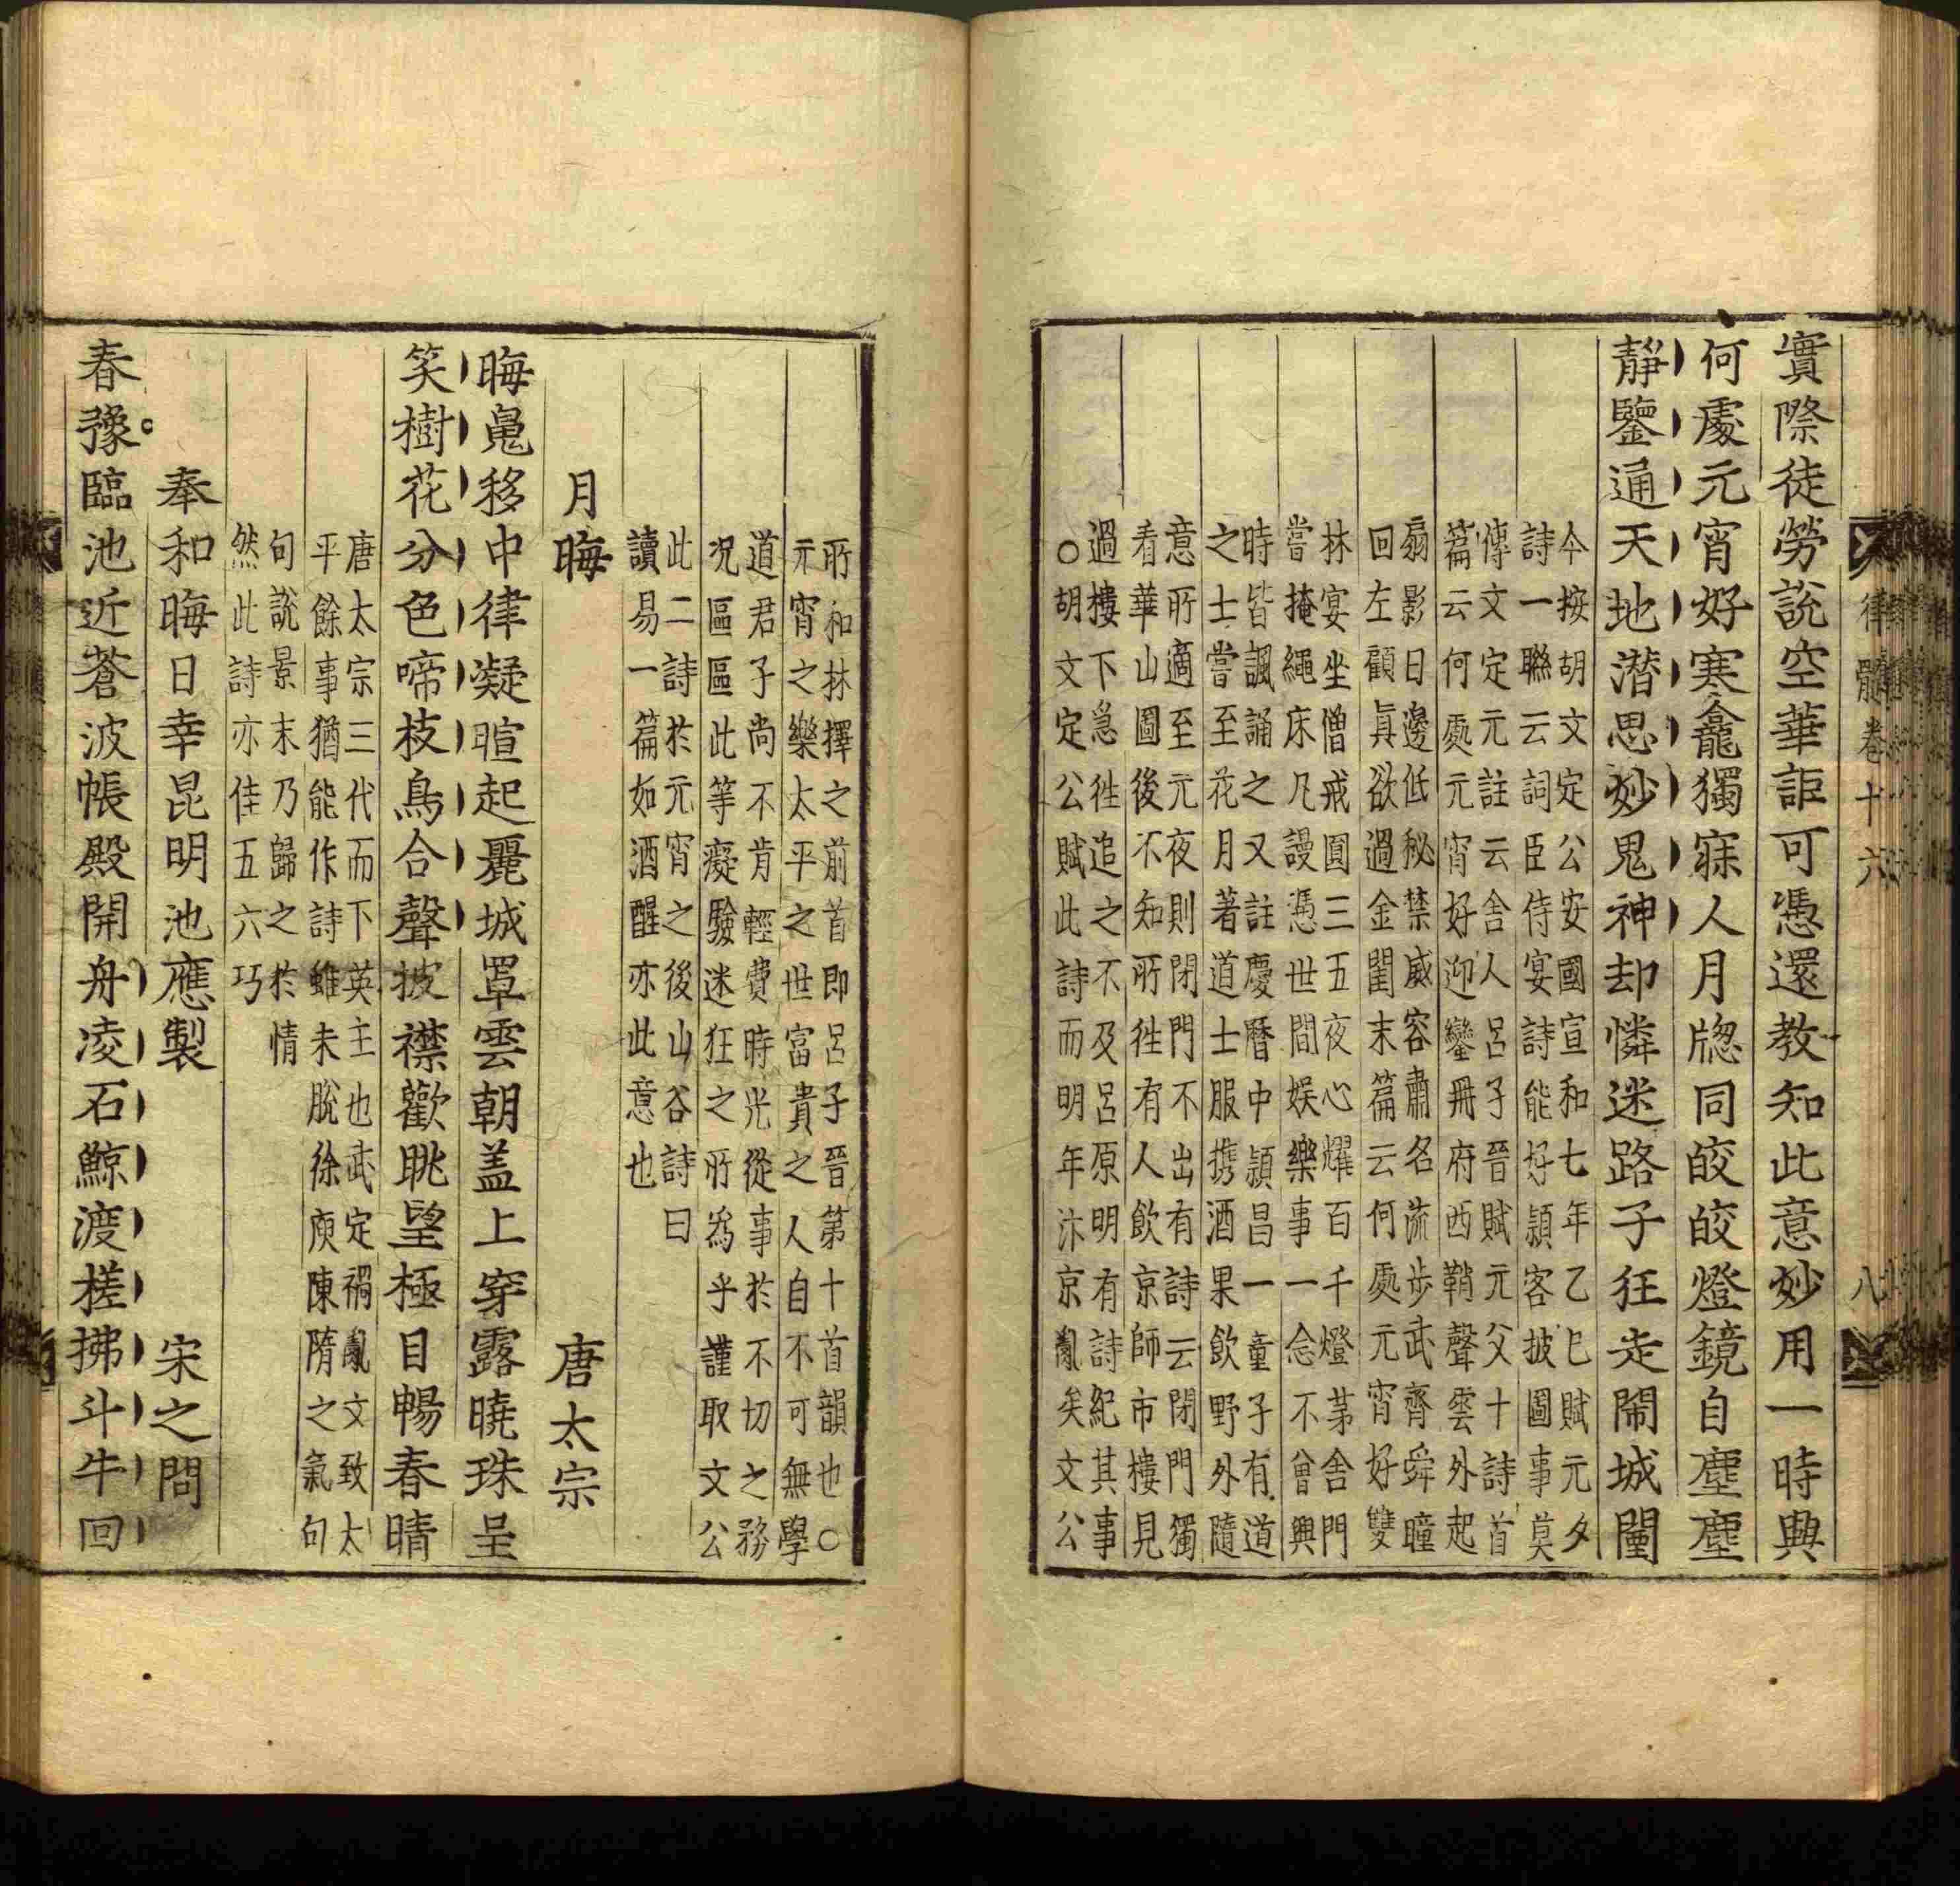 實際徒勞說空華詎可憑還教知此意妙用一時興
何處元宵好寒龕獨寐人月牎同皎皎燈鏡自塵塵
靜鑒通天地潜思妙鬼神却憐迷路子狂走閙城闉
今按胡文定公安國宣和七年乙巳賦元夕
詩一聯云詞臣侍宴詩能好潁客披圖事莫
傳文定元註云舍人呂子晉賦元父十詩首
篇云何處元宵好迎鑾冊府西鞘聲雲外起
扇影日邊低秘禁威容肅名流步武齊舜瞳
回左顧眞欲過金閨末篇云何處元宵好雙
林宴坐僧戒圓三五夜心耀百千燈茅舍門
嘗掩繩床凡謾憑世間娛樂事一念不曾興
時皆諷誦之又註慶曆中潁昌一童子有道
之士嘗至花月著道士服携酒果飲野外隨
意所適至元夜則閉門不出有詩云閉門獨
看華山圖後不知所徃有人飲京師市樓見
過樓下急徃追之不及呂原明有詩紀其事
○胡文定公賦此詩而明年汴京亂矣文公
律髓卷十六
八
所和林擇之前首即呂子晉第十首韻也○
元宵之樂太平之世富貴之人自不可無學
道君子尚不肯輕費時光從事於不切之務
况區區此等癡騃迷狂之所為乎謹取文公
此二詩於元宵之後山谷詩曰
讀易一篇如酒醒亦此意也
月晦　唐太宗
晦魄移中律凝暄起麗城罩雲朝盖上穿露曉珠呈
笑樹花分色啼枝鳥合聲披襟歡眺望極目暢春晴
唐太宗三代而下英主也武定禍亂文致太
平餘事猶能作詩雖未脫徐庾陳隋之氣句
句說景末乃歸之於情
然此詩亦佳五六巧
奉和晦日幸昆明池應製　宋之問
春豫臨池近蒼波帳殿開舟凌石鯨渡槎拂斗牛回